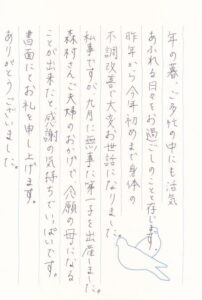 年の暮、ご多忙の中にも活気
あふれる日々をお過ごしのことと存じます。
昨年から今年初めまで身体の
不調改善で大変お世話になりました。
私事ですが、九月に無事に第一子を出産しました。
森村さんご夫婦のおかげで念願の母になる
ことが出来たと感謝の気持ちでいっぱいです。
書面にてお礼を申し上げます。
ありがとうございました。